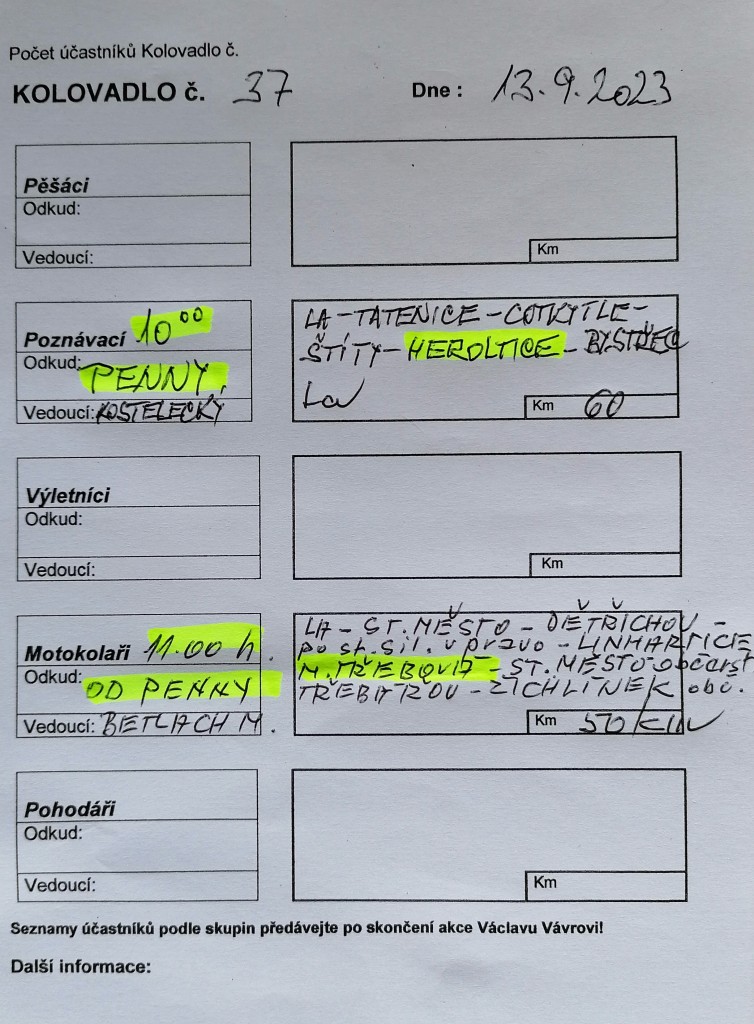 Počet účastníků Kolovadlo č.
KOLOVADLO č. 37 Dne : 13.9.2023
Pěšáci
Odkud:
Vedoucí:
Km
Poznávací 10⁰⁰
Odkud: PENNY,
Vedoucí: KOSTELECKÝ
LA - TATENICE - COTKYTLE -
ŠTÍTY - HEROLTICE - BYSTŘEC
La
Km 60
Výletníci
Odkud:
Vedoucí:
Km
Motokolaři 11.00 h.
Odkud: OD PENNY
Vedoucí: BETLACH M.
LA - ST. MĚSTO - DĚTŘICHOV -
po st. sil. vpravo - LINHARTICE
M. TŘEBOVÁ - ST. MĚSTO - občerst
TŘEBAŘOV - ŽICHLÍNEK obč.
Km 50 km
Pohodáři
Odkud:
Vedoucí:
Km
Seznamy účastníků podle skupin předávejte po skončení akce Václavu Vávrovi!
Další informace: